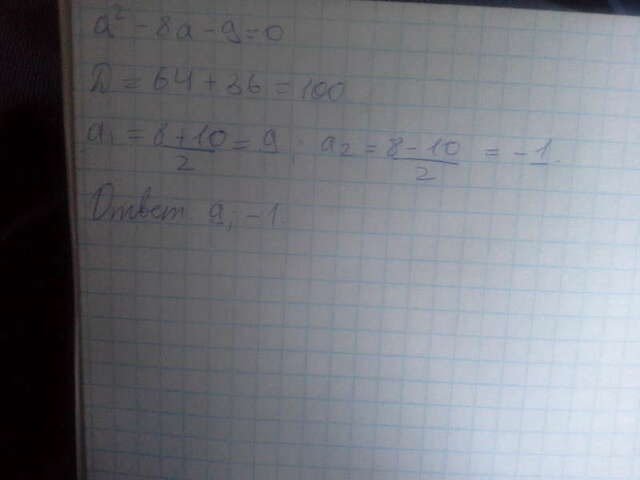 a² - 8a - 9 = 0
D = 64 + 36 = 100
a₁ = 8+10/2 = 9; a₂ = 8-10/2 = -1.
Ответ 9, -1.